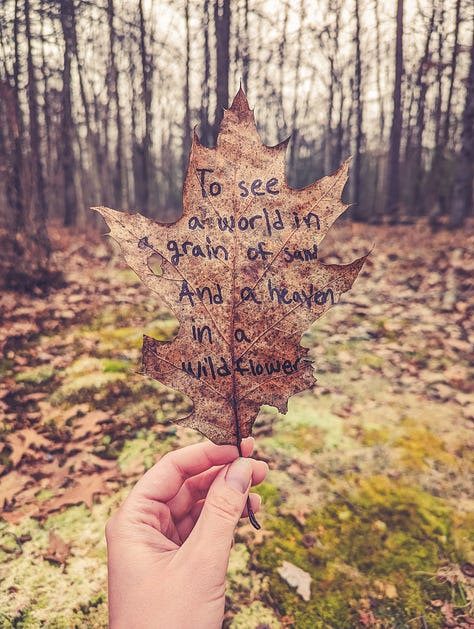 To see
a world in
a grain of sand
And a heaven
in a
wild flower